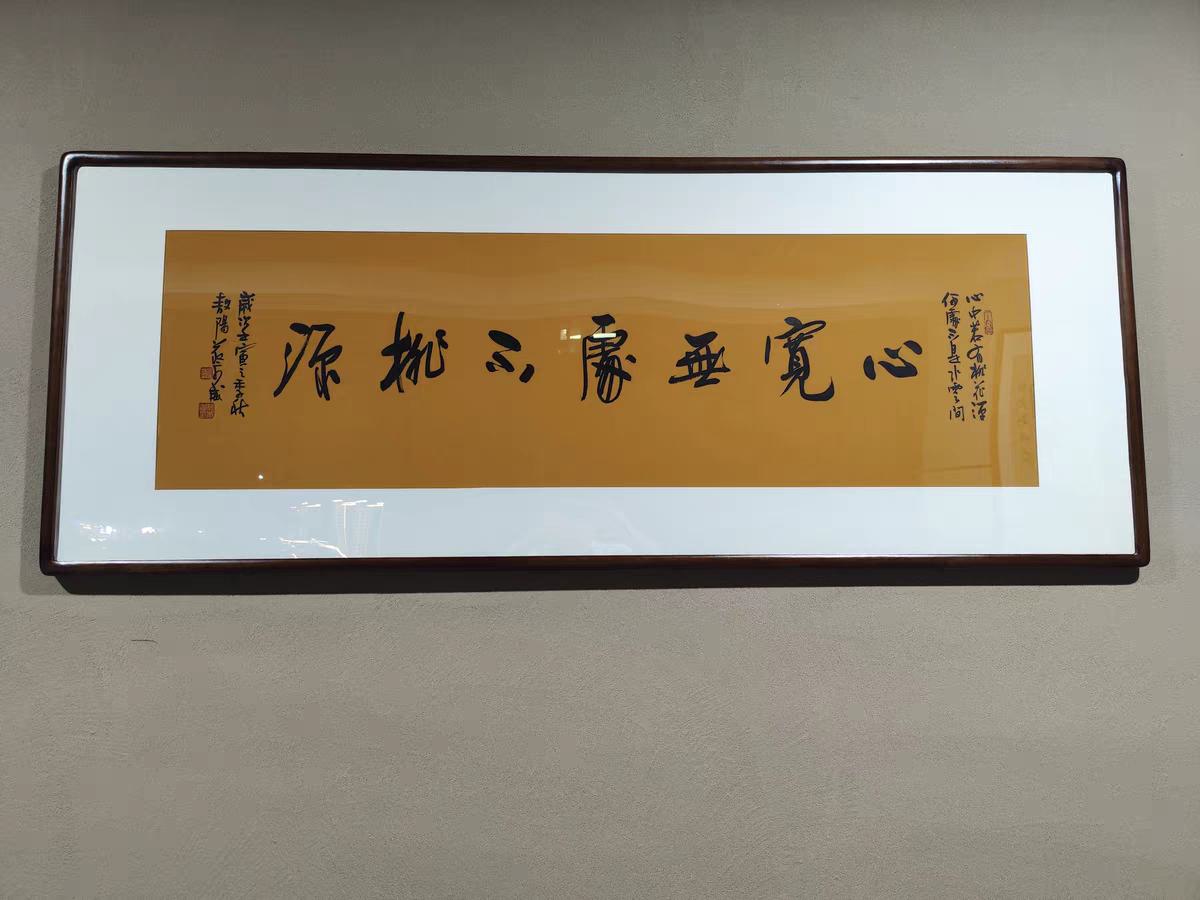 心中若有桃花源
何處不是水雲間
心寬無處不桃源
歲次壬寅之季秋
敖陽